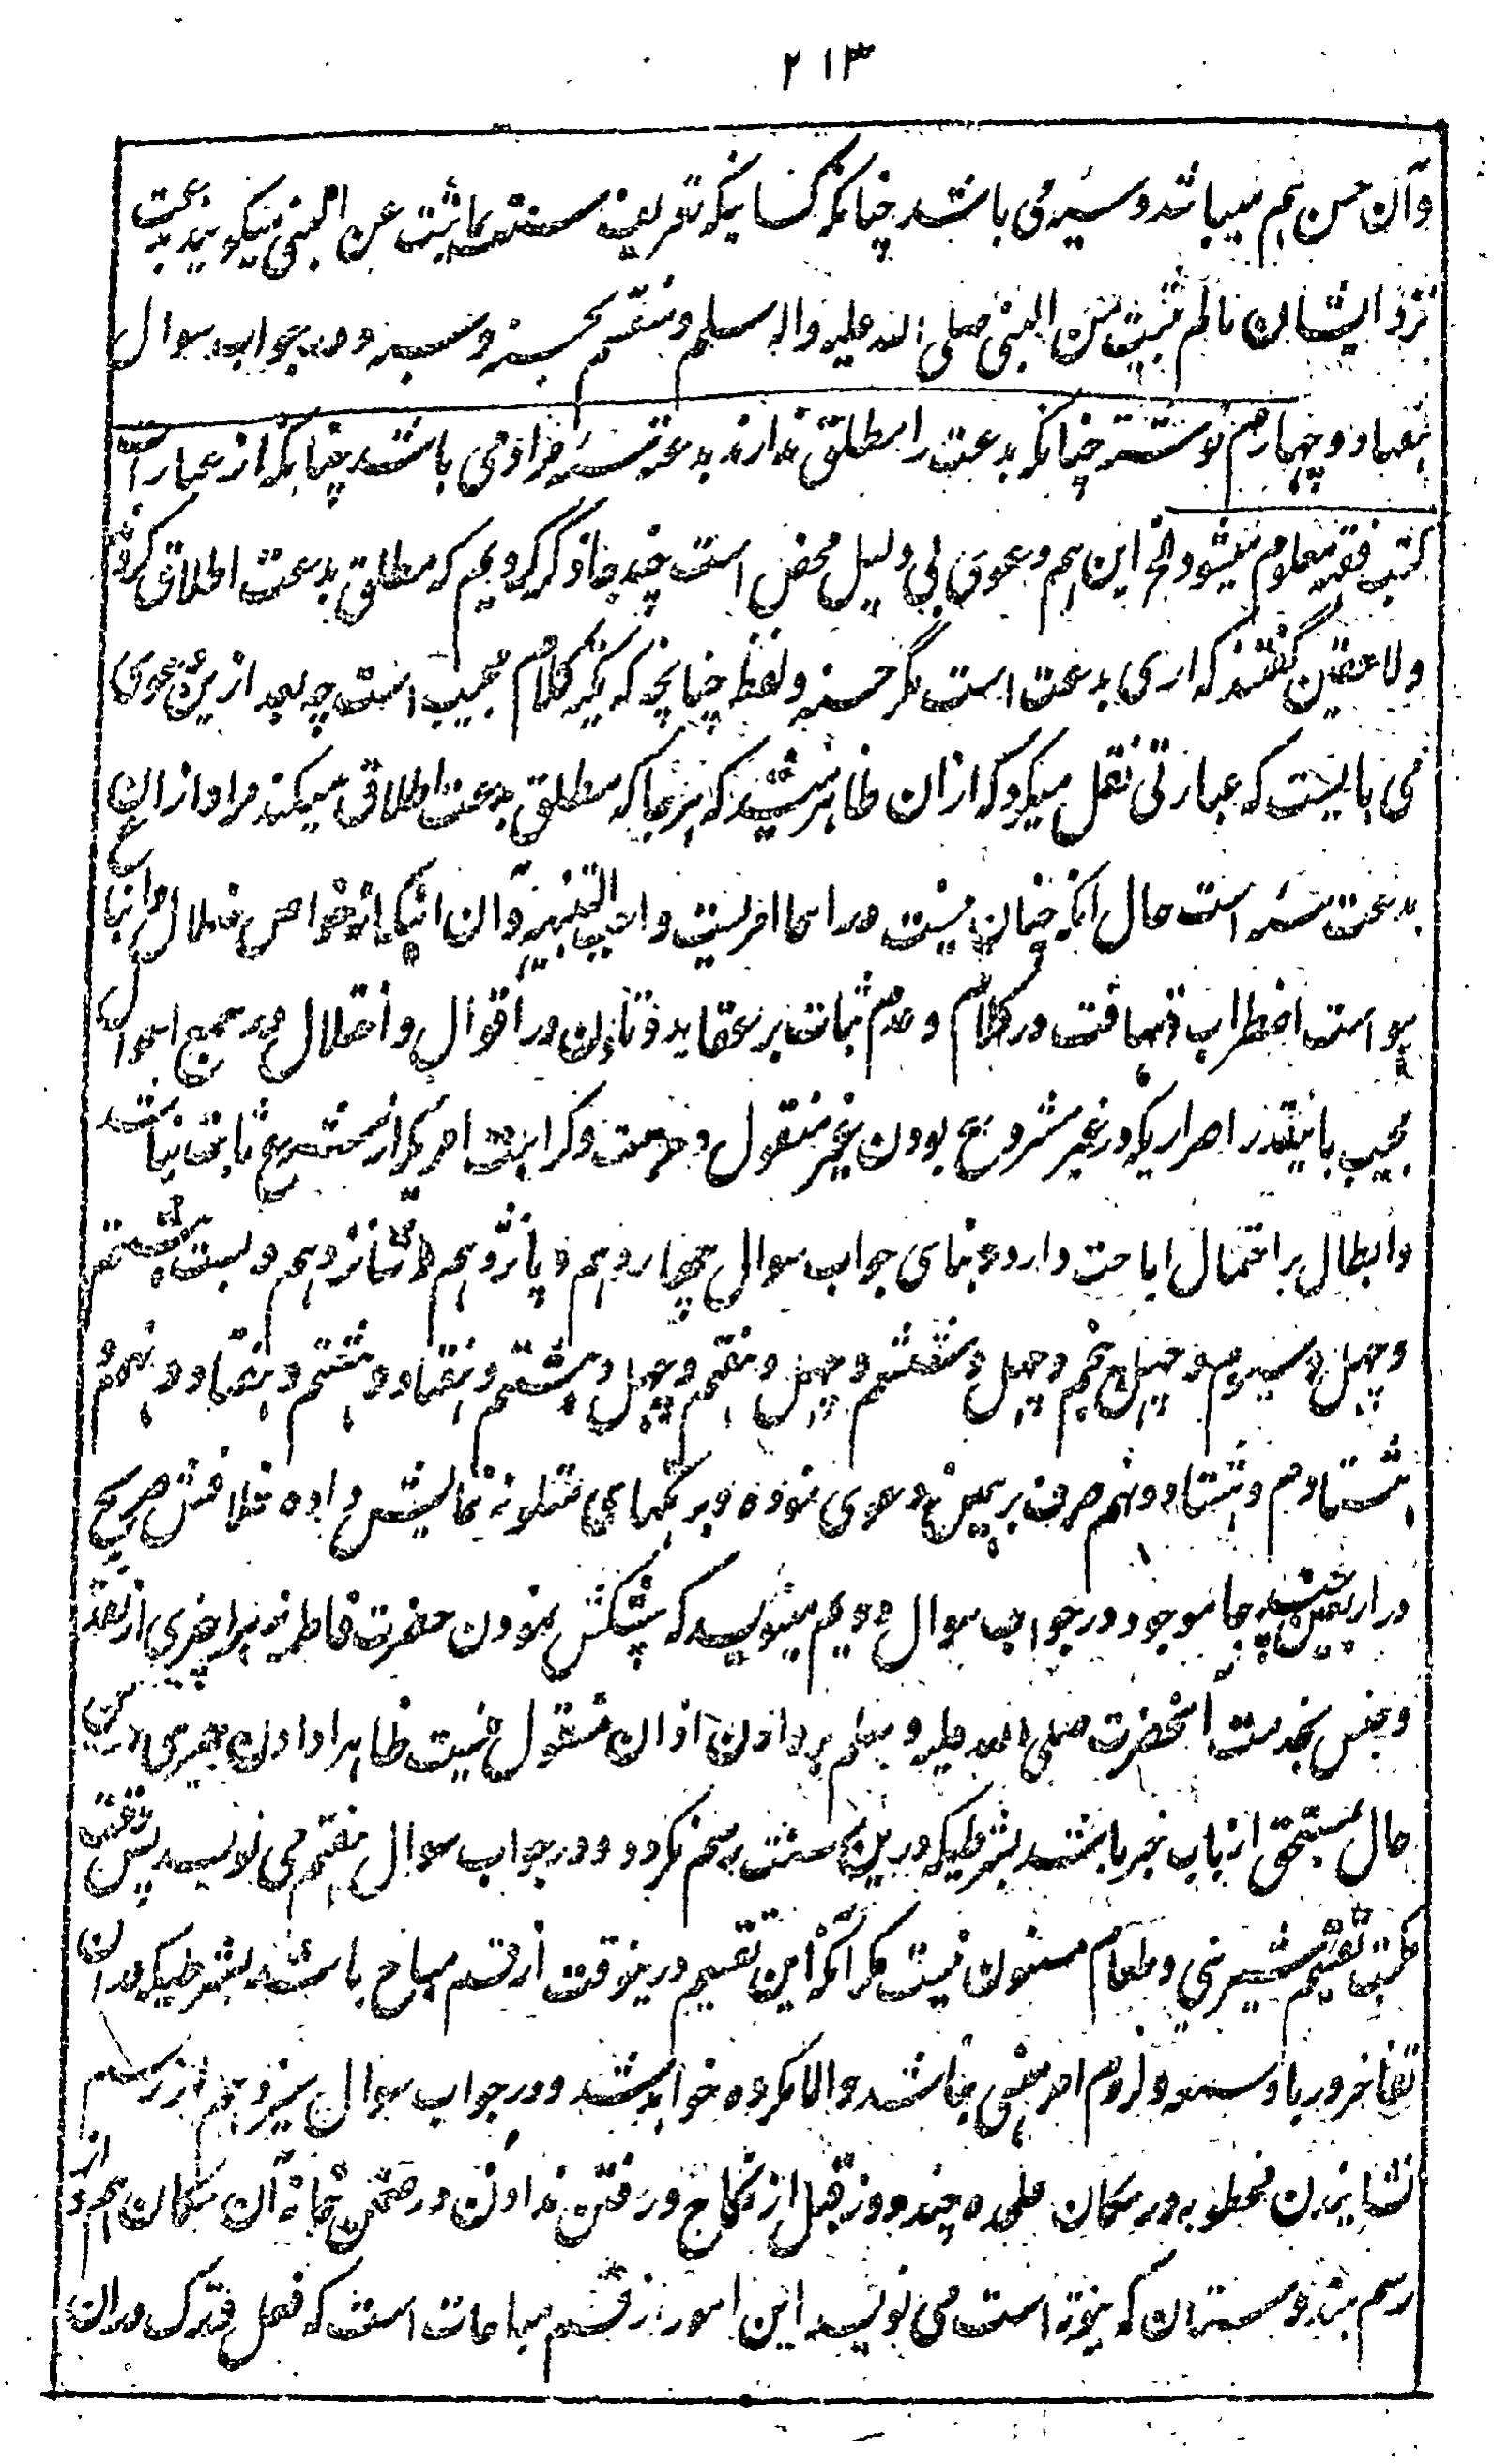 ۲۱۳
وآن حسن هم میباشد و سیئه می باشد چنانکه کسانیکه تعریف سنت بما ثبت عن النبی میگویند بدعت
نزد ایشان مالم یثبت عن النبی صلی الله علیه واله وسلم ومنقسم بحسنه وسیئه ودر جواب سوال
هفتاد و چهارم نوشته چنانکه بدعت را مطلق ندارند بدعت سیئه مراد می باشد چنانکه از عبارات
کتب فقه معلوم میشود الخ این هم دعوی بی دلیل محض است چند جا ذکر کردیم که مطلق بدعت اطلاق کرده
ولاحقین گفتند که اری بدعت است مگر حسنه ولفظ چنانچه که تکیه کلام مجیب است چه بعد ازین دعوی
می بایست که عبارتی نقل میکرد که ازان ظاهر میشد که هر جا که مطلق بدعت اطلاق میکنند مراد ازان
بدعت سیئه است حال آنکه چنان نیست هذا امر واجب التنبیه وآن اینکه از خواص ضلال واتباع
هوا است اضطراب وتهافت در کلام وعدم ثبات بر عقاید وتلون در اقوال واختلال در جمیع احوال
مجیب باینقدر اصراریکه در غیر مشروع بودن غیر منقول وحرمت وکراهت امریکه از شرع ثابت نباشد
وابطال بر احتمال اباحت دارد وبنای جواب سوال چهاردهم وپانزدهم وشانزدهم وبست وهشتم
وچهل وسیوم وچهل وپنجم وچهل وششم وچهل وهفتم وچهل وهشتم وهفتاد وهشتم وهفتاد ونهم و
هشتادم وهشتاد ونهم صرف بر همین دعوی نموده وبرنگهای متلونه نمایش داده خلافش صریح
در اربعین چند جا موجود در جواب سوال دویم مینویسد که پیشکش نمودن حضرت فاطمه زهرا چیزی از نقد
وجنس بخدمت آنحضرت صلی الله علیه وسلم بعد دادن اذان منقول نیست ظاهرا دادن چیزی درین
حال مستحق از باب خیر باشد بشرطیکه درین سنت رسم نگردد ودر جواب سوال هفتم می نویسد پس وقت
مکتب تقسیم شیرینی وطعام مسنون نیست مگر آنکه این تقسیم درینوقت از قسم مباح باشد بشرطیکه دران
تفاخر وریا وسمعه ولزوم امر منهی نباشد والا مکروه خواهد شد ودر جواب سوال سیزدهم از رسم
نشانیدن مخطوبه در مکان علحده چند روز قبل از نکاح ورفتن ندادن در صحن خانه آن مکان هم که از
رسم هندوستان که نیوته است می نویسد این امور از قسم مباحات است که فعل وترک دران